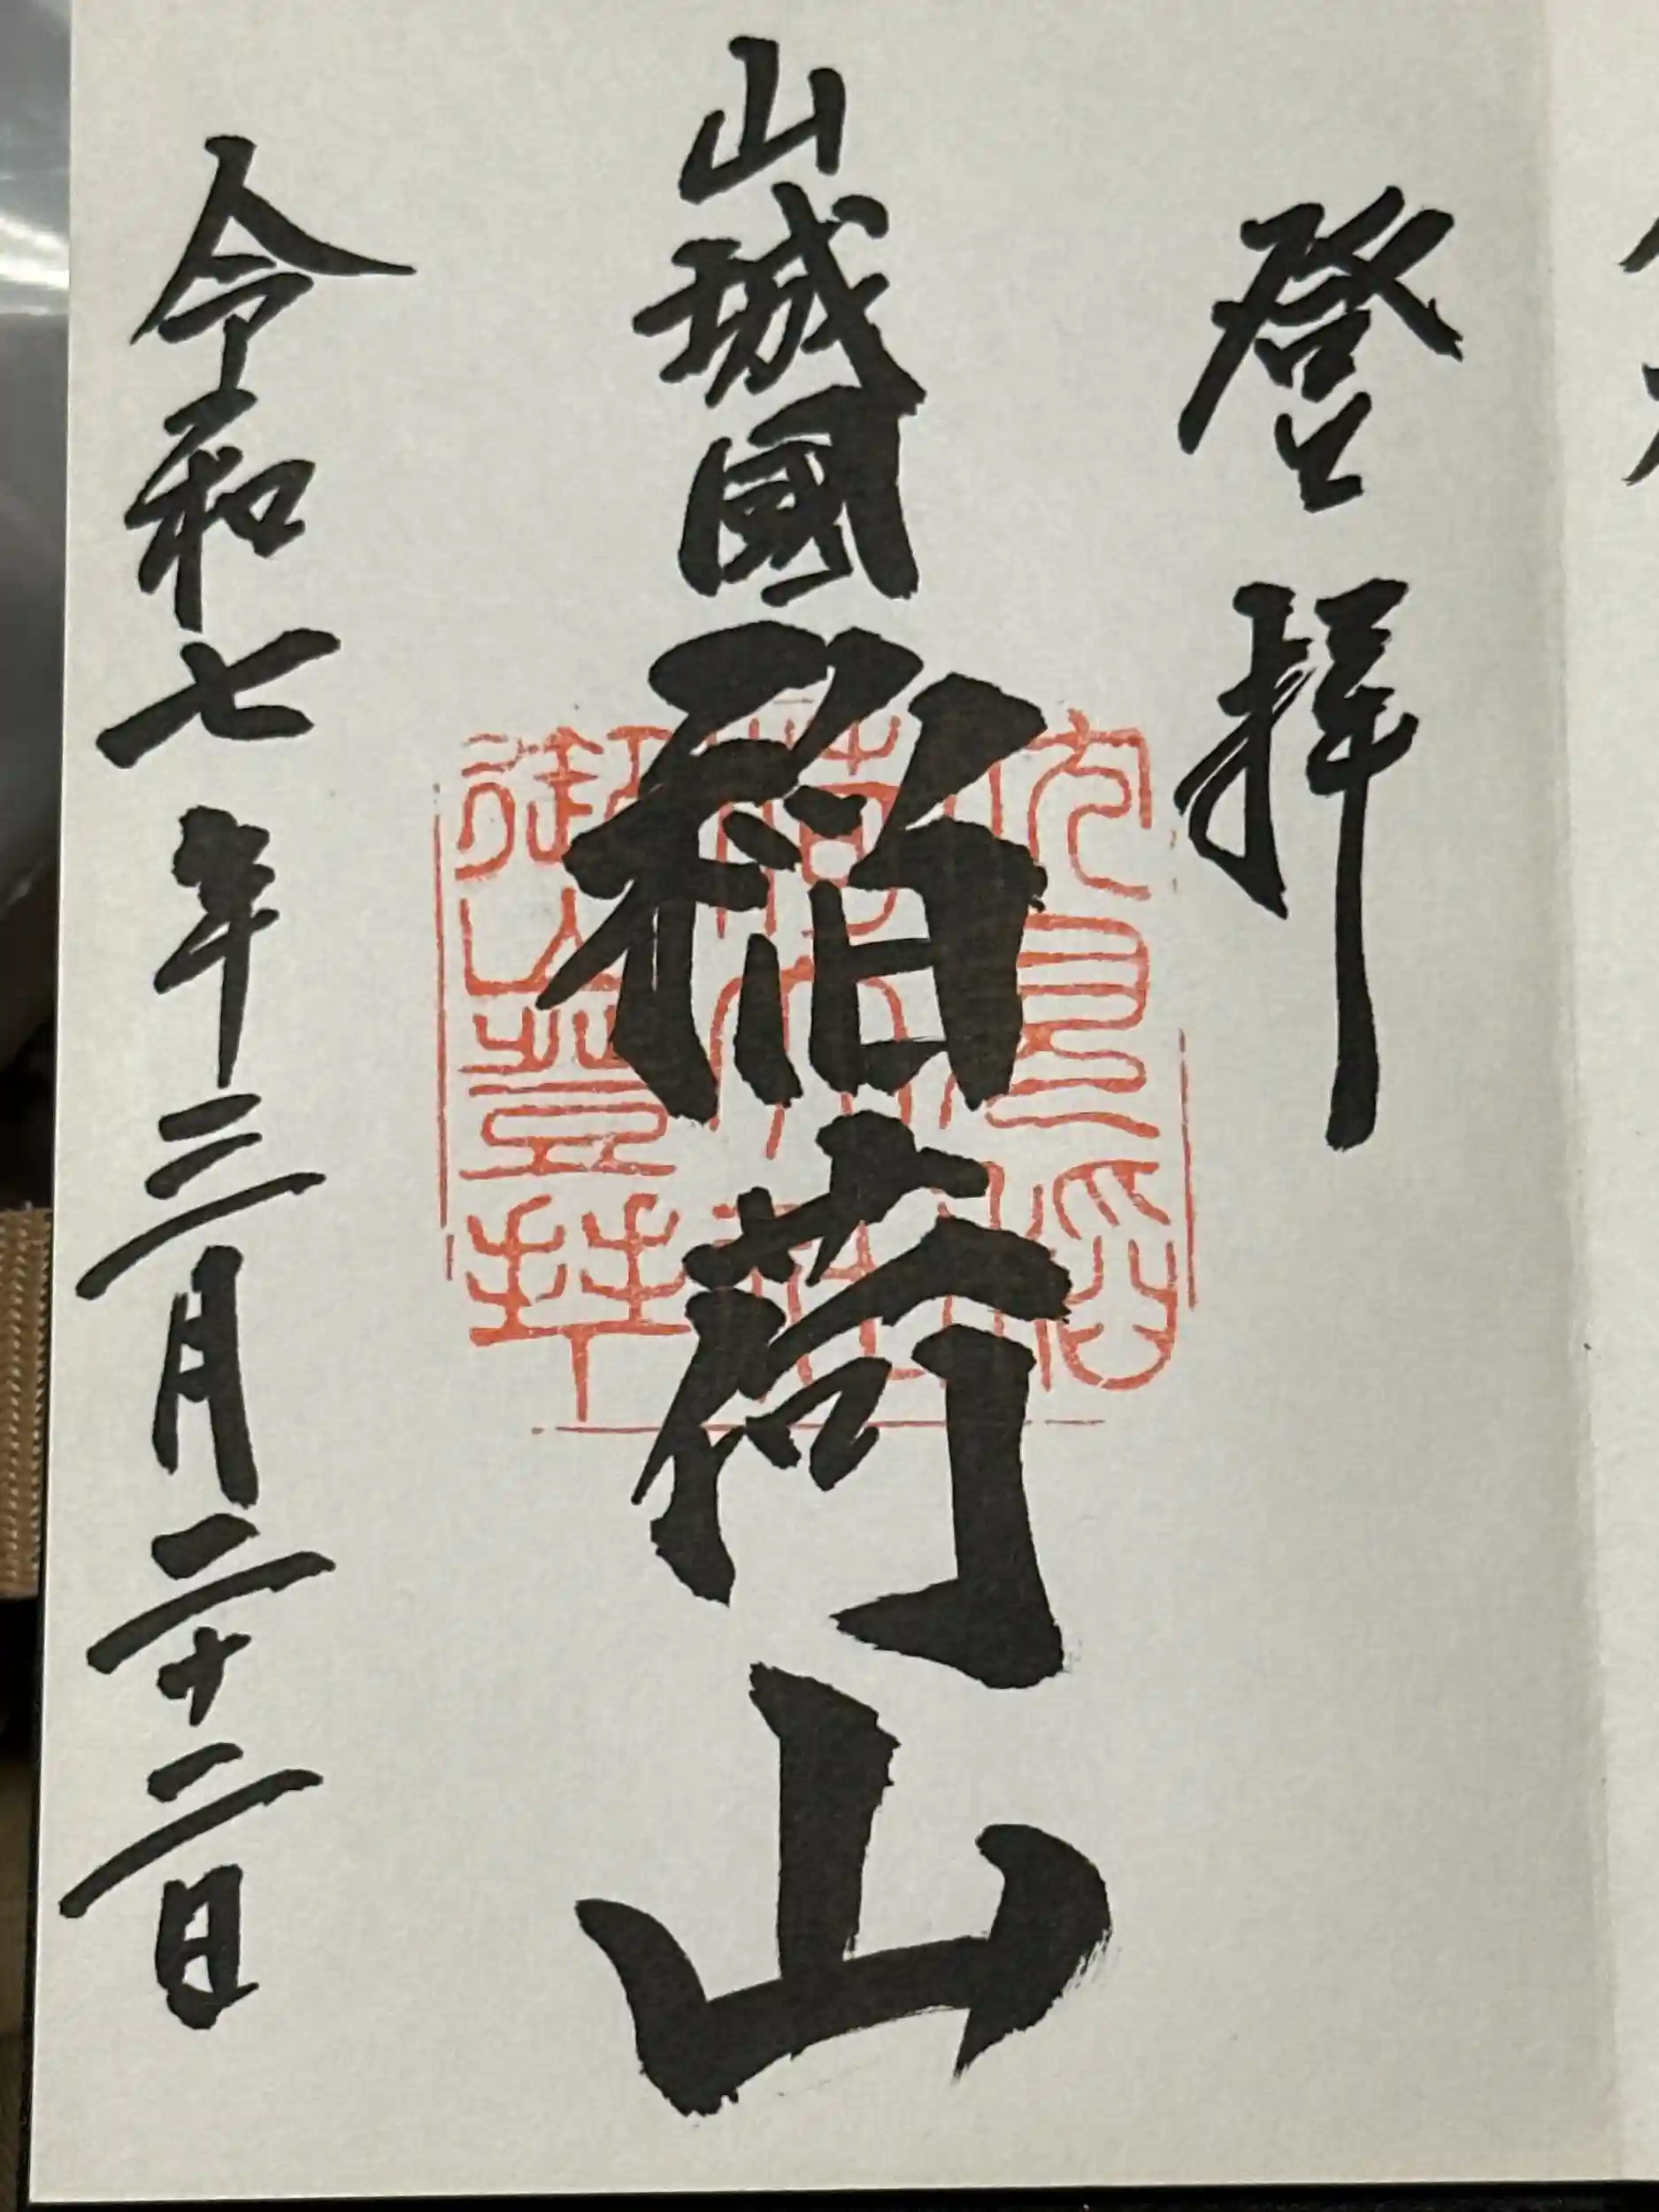 登拝
山城國稲荷山
令和七年三月二十二日